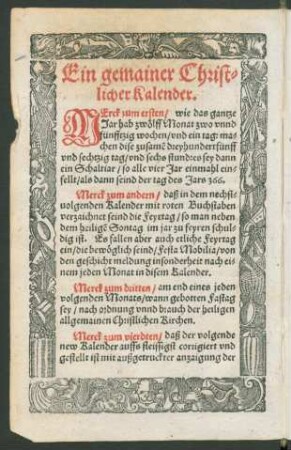 Ein gemainer Christ-
licher Kalender.
MErck zum ersten / wie das gantze
Jar hab zwölff Monat zwo vnnd
fünfftzig wochen / vnd ein tag: ma
chen dise zusamẽ dreyhundert fünff
vnd sechtzig tag / vnd sechs stund: es sey dann
ein Schaltiar / so alle vier Jar einmahl ein
fellt / als dann seind der tag des Jars 366.
Merck zum andern / daß in dem nechst-
uolgenden Kalender mit roten Buchstaben
verzaichnet seind die Feyrtag / so man neben
dem heiligẽ Sontag im jar zu feyren schul-
dig ist. Es fallen aber auch etliche Feyrtag
ein / die bewöglich seind / Festa Mobilia / von
den geschicht meldung insonderheit nach ei-
nem jeden Monat in disem Kalender.
Merck zum dritten / am end eines jeden
volgenden Monats / wann gebotten Fastag
sey / nach ordnung vnnd brauch der heiligen
allgemainen Christlichen Kirchen.
Merck zum vierdten / daß der volgende
new Kalender auffs fleissigst corrigiert vnd
gestellt ist mit außgetruckter anzaigung der